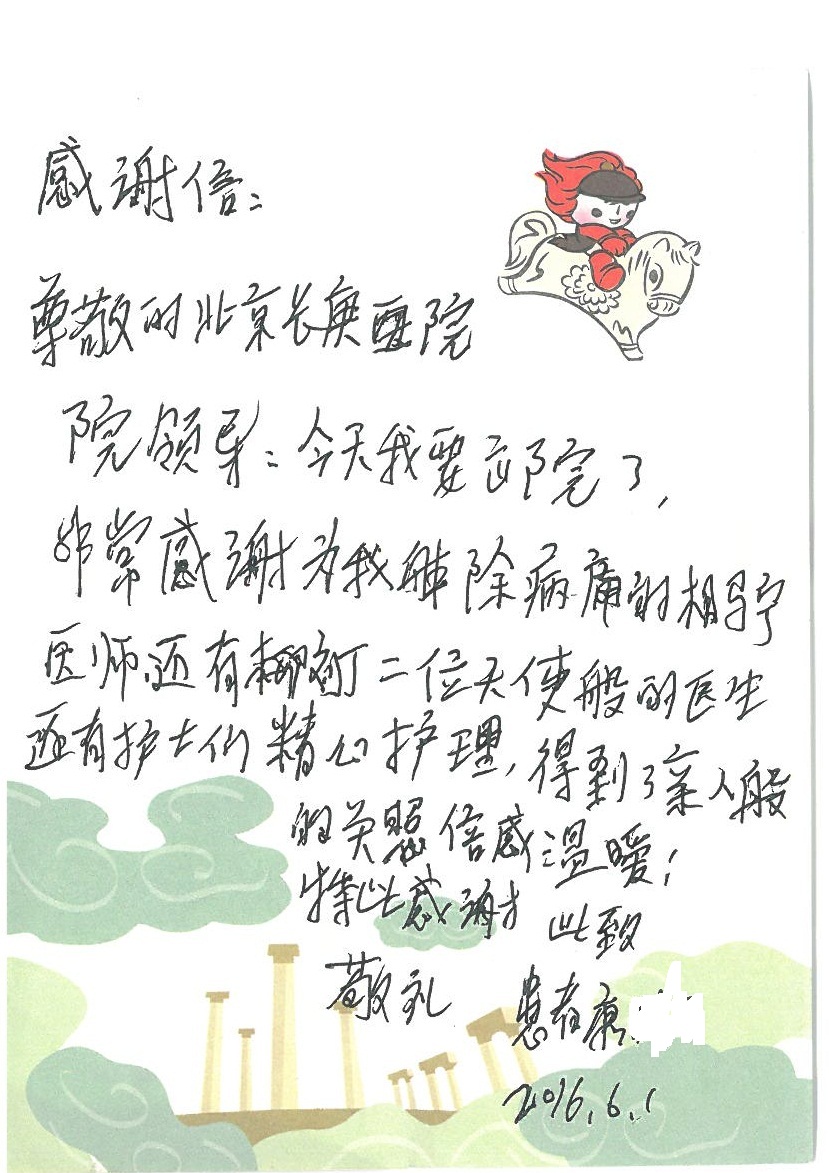 感谢信：
尊敬的北京长庚医院
院领导：今天我要出院了，
非常感谢为我解除病痛的相宁
医师，还有 二位天使般的医生
还有护士们精心护理，得到了亲人般
的关照倍感温暖！
特此感谢 此致
敬礼 患者康
2016.6.1